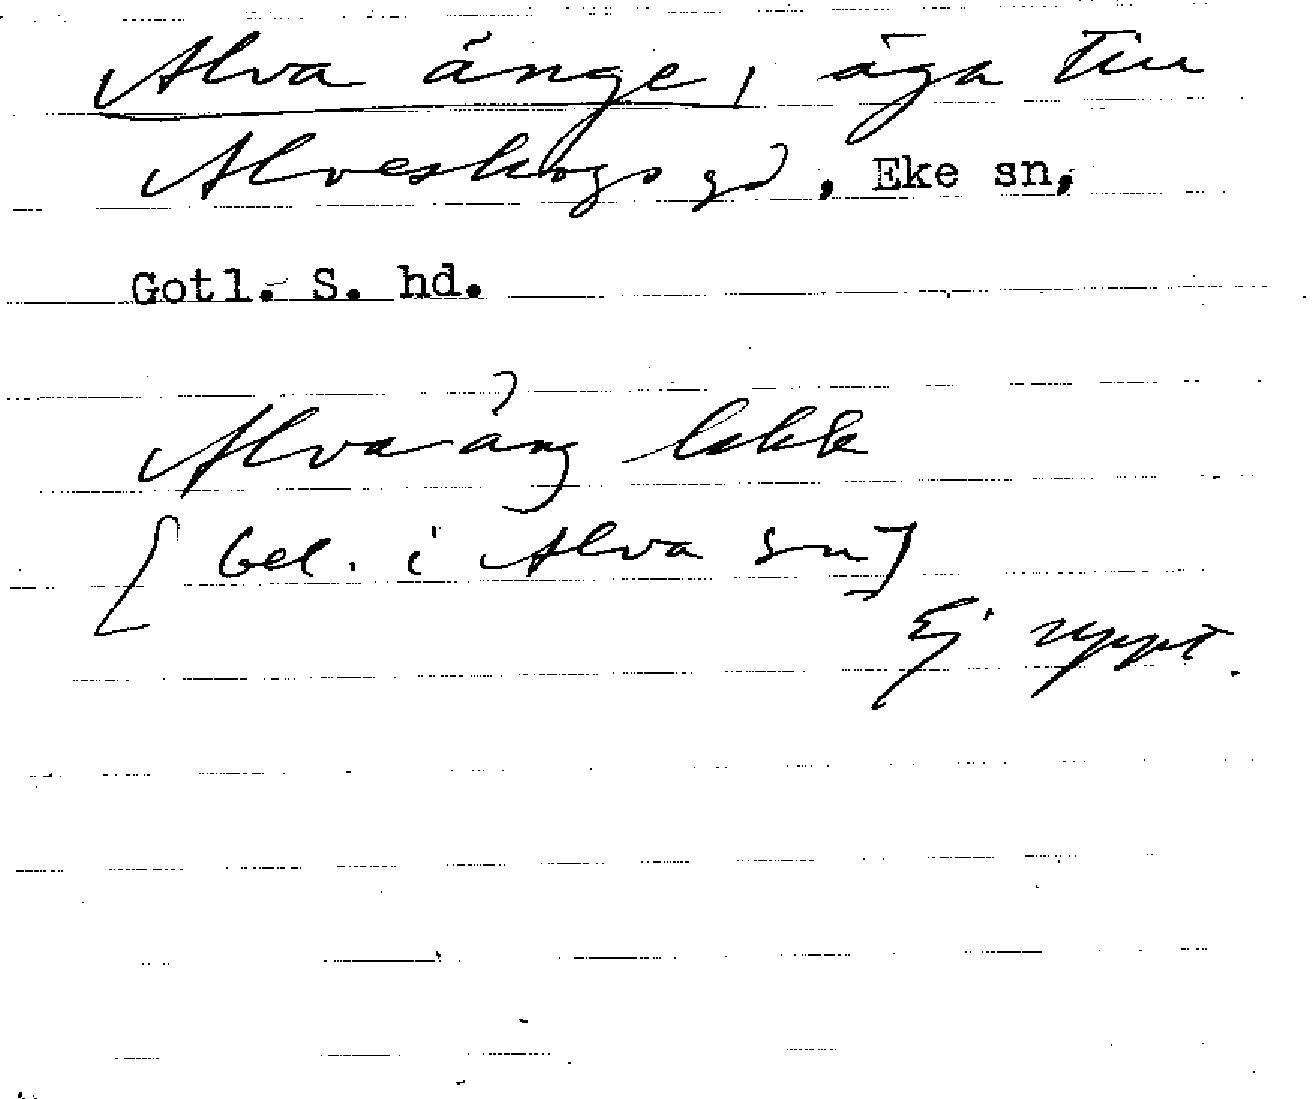 Alva änge, äga till
Alveskogs gd, Eke sn,
Gotl. S. hd.
Alvaäng lokk
[bel. i Alva sn]
Ej uppt.